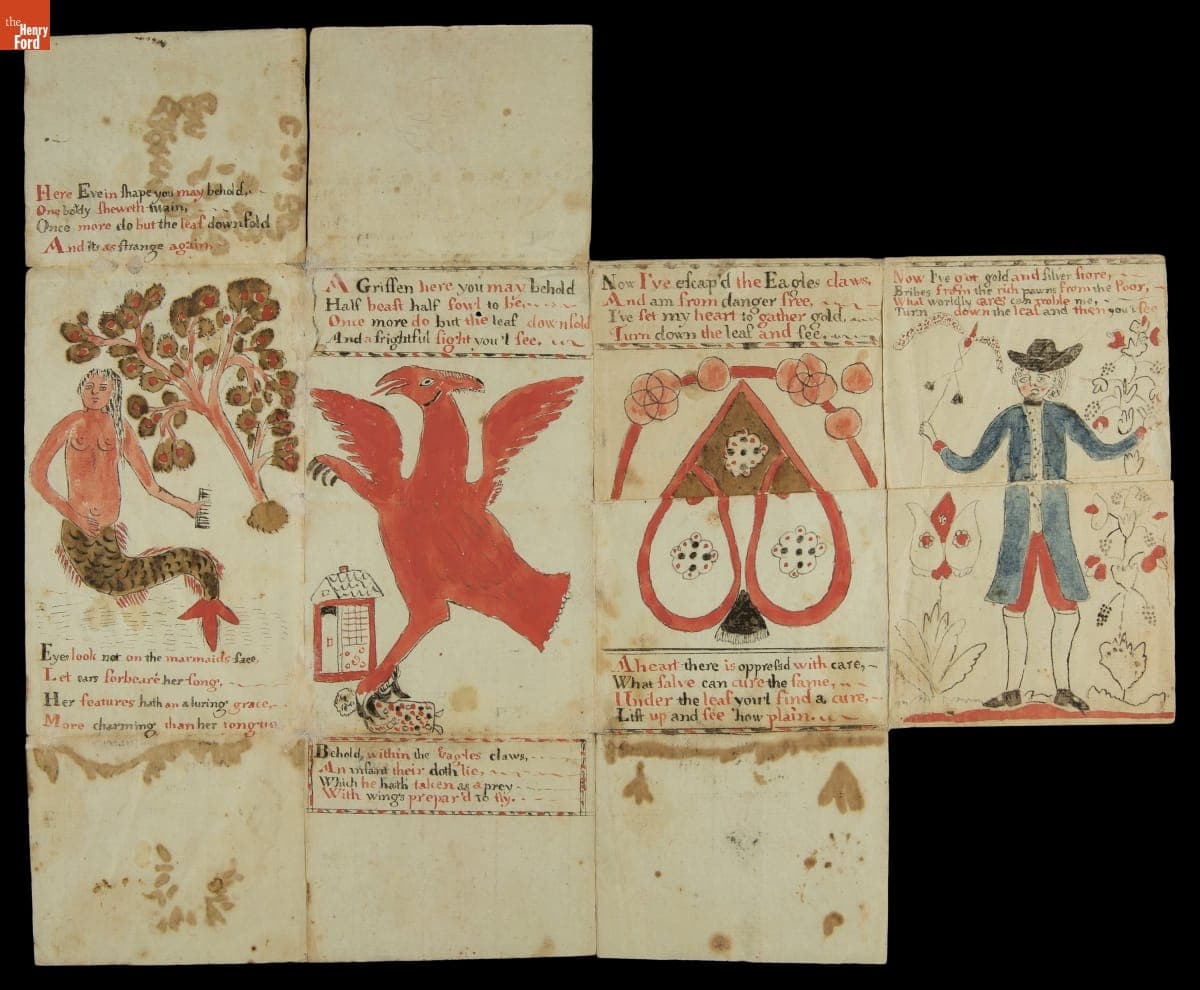 the
Henry
Ford
Here Eve in shape you may behold,
One body sheweth twain,
Once more do but the leaf downfold
And its as strange again,
Eyes look not on the marmaids face,
Let ears forbeare her song,
Her features hath an aluring grace,
More charming than her tongue
A Griffen here you may behold
Half beast half fowl to be,
Once more do but the leaf downfold
And a frightful sight you'l see,
Behold, within the Eagles claws,
An infant their doth lie,
Which he hath taken as a prey
With wings prepar'd to fly.
Now I've escap'd the Eagles claws,
And am from danger free,
I've set my heart to gather gold,
Turn down the leaf and see,
A heart there is oppressd with care,
What salve can cure the same,
Under the leaf your'l find a cure,
Lift up and see how plain.
Now I've got gold and silver store,
Bribes from the rich pawns from the Poor,
What worldly cares can troble me,
Turn down the leaf and then you'l see